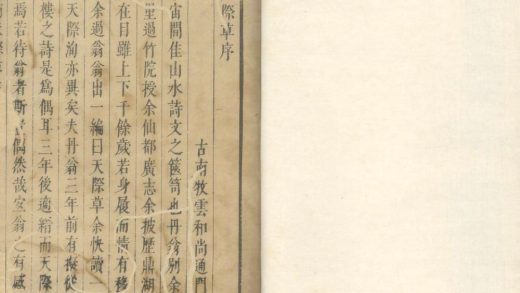 際草序
古南牧雲和尚通門
宙間佳山水詩文之篋笥也丹翁別余
里過竹院授余仙都廣志余披歷鼎湖
在目雖上下千餘歲若身履而情有移
余過翁翁出一編曰天際草余快讀一
天際洵亦異矣夫丹翁三年前有擬從
樓之詩是為偶耳三年後適緇而天際
焉若待翁者斯偶然哉宜翁之有感